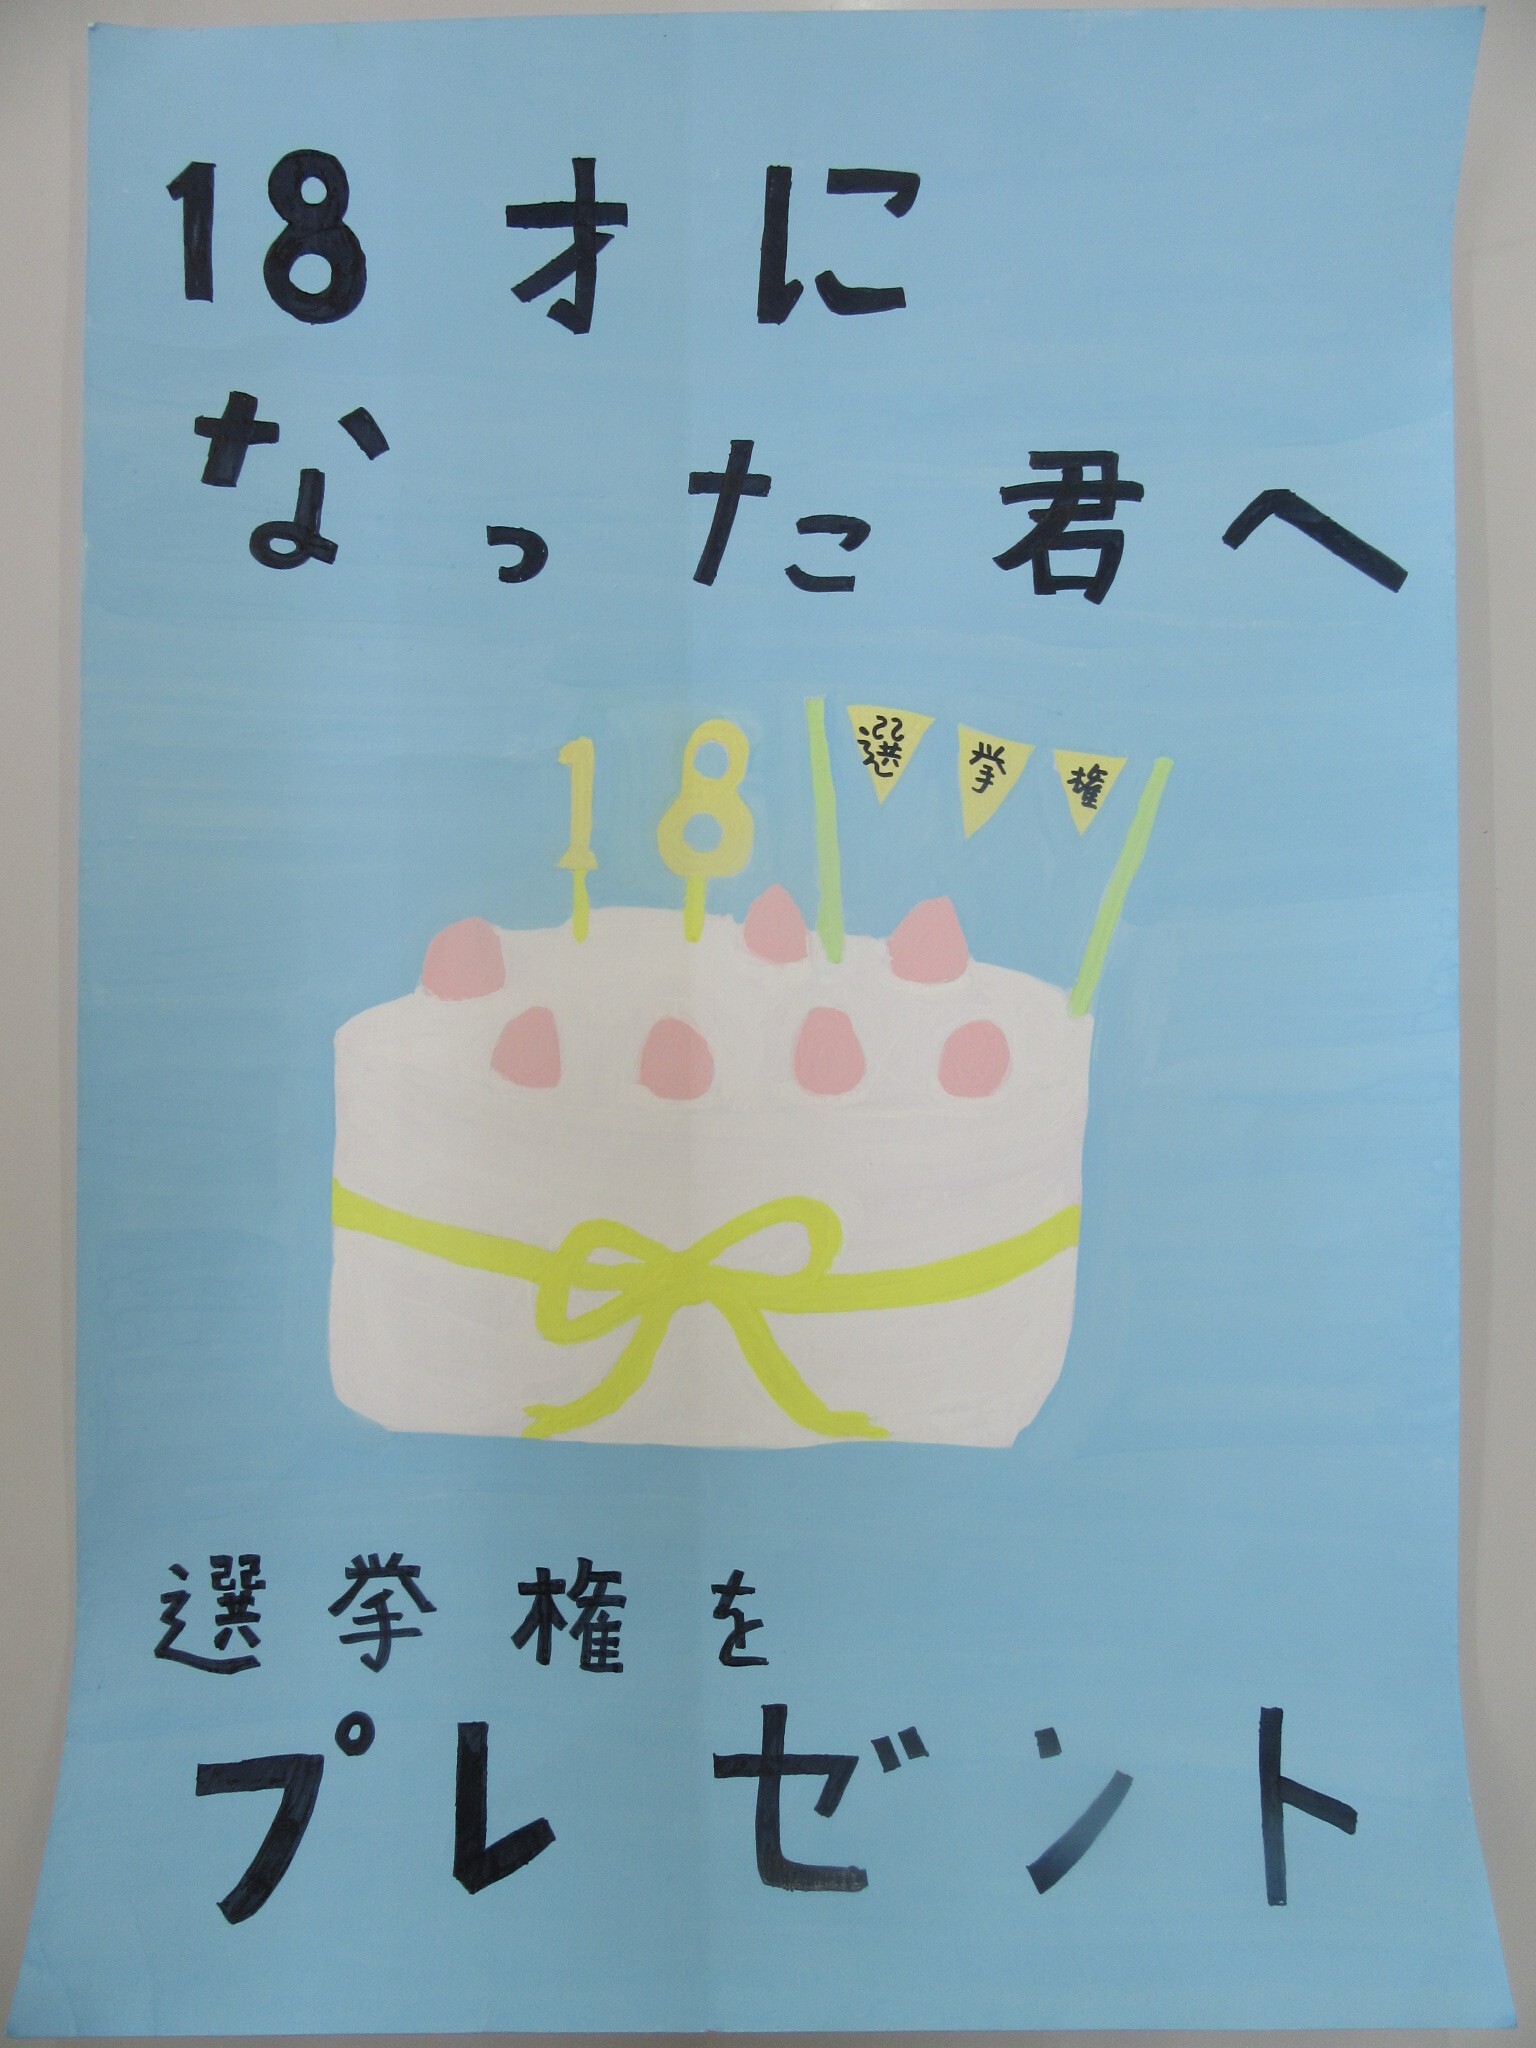 18才に
なった君へ
選挙権
選挙権を
プレゼント